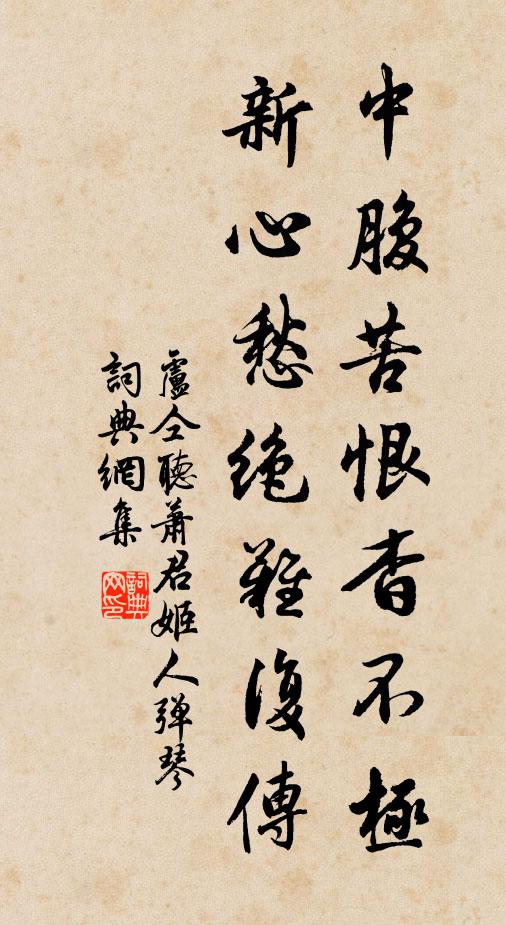 中腹苦恨杳不極
新心愁絕難復傳
盧仝聽蕭君姬人彈琴
詞典網集
詞典网印